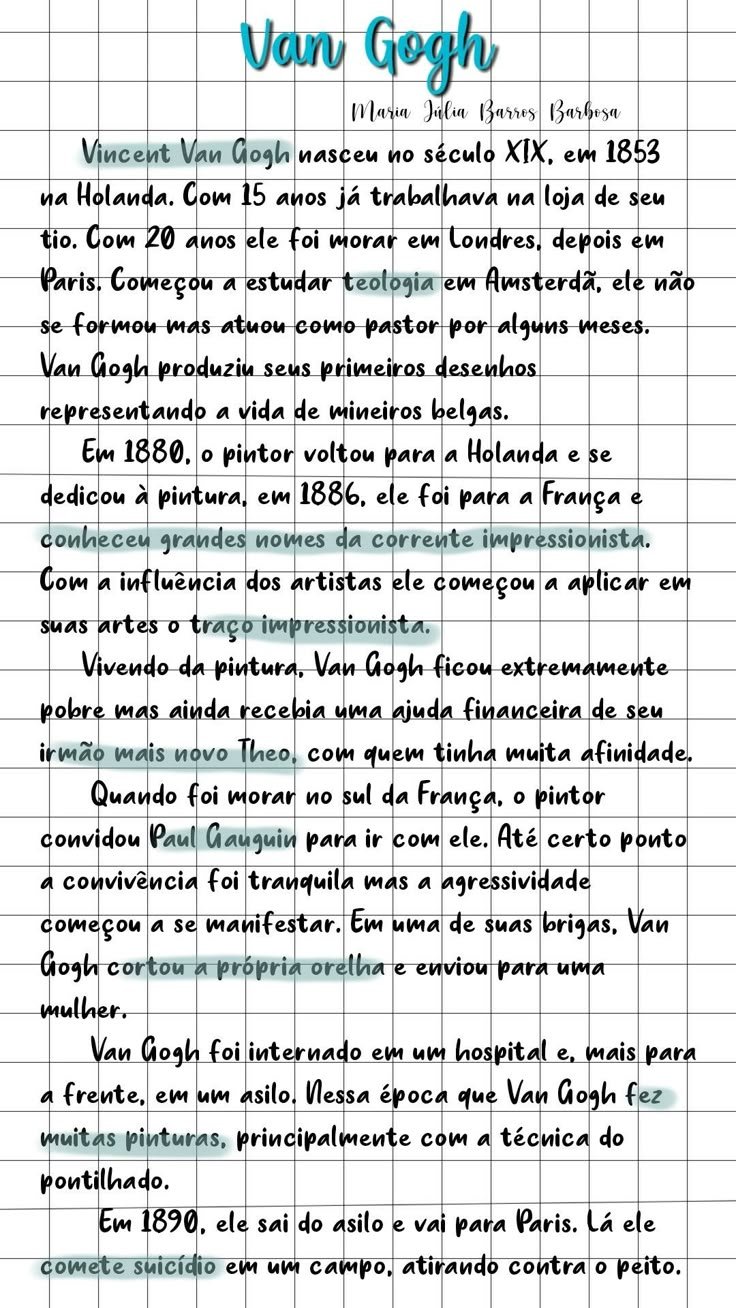 Van Gogh
Maria Júlia Barros Barbosa
Vincent Van Gogh nasceu no século XIX, em 1853
na Holanda. Com 15 anos já trabalhava na loja de seu
tio. Com 20 anos ele foi morar em Londres, depois em
Paris. Começou a estudar teologia em Amsterdã, ele não
se formou mas atuou como pastor por alguns meses.
Van Gogh produziu seus primeiros desenhos
representando a vida de mineiros belgas.
Em 1880, o pintor voltou para a Holanda e se
dedicou à pintura, em 1886, ele foi para a França e
conheceu grandes nomes da corrente impressionista.
Com a influência dos artistas ele começou a aplicar em
suas artes o traço impressionista.
Vivendo da pintura, Van Gogh ficou extremamente
pobre mas ainda recebia uma ajuda financeira de seu
irmão mais novo Theo, com quem tinha muita afinidade.
Quando foi morar no sul da França, o pintor
convidou Paul Gauguin para ir com ele. Até certo ponto
a convivência foi tranquila mas a agressividade
começou a se manifestar. Em uma de suas brigas, Van
Gogh cortou a própria orelha e enviou para uma
mulher.
Van Gogh foi internado em um hospital e, mais para
a frente, em um asilo. Nessa época que Van Gogh fez
muitas pinturas, principalmente com a técnica do
pontilhado.
Em 1890, ele sai do asilo e vai para Paris. Lá ele
comete suicídio em um campo, atirando contra o peito.